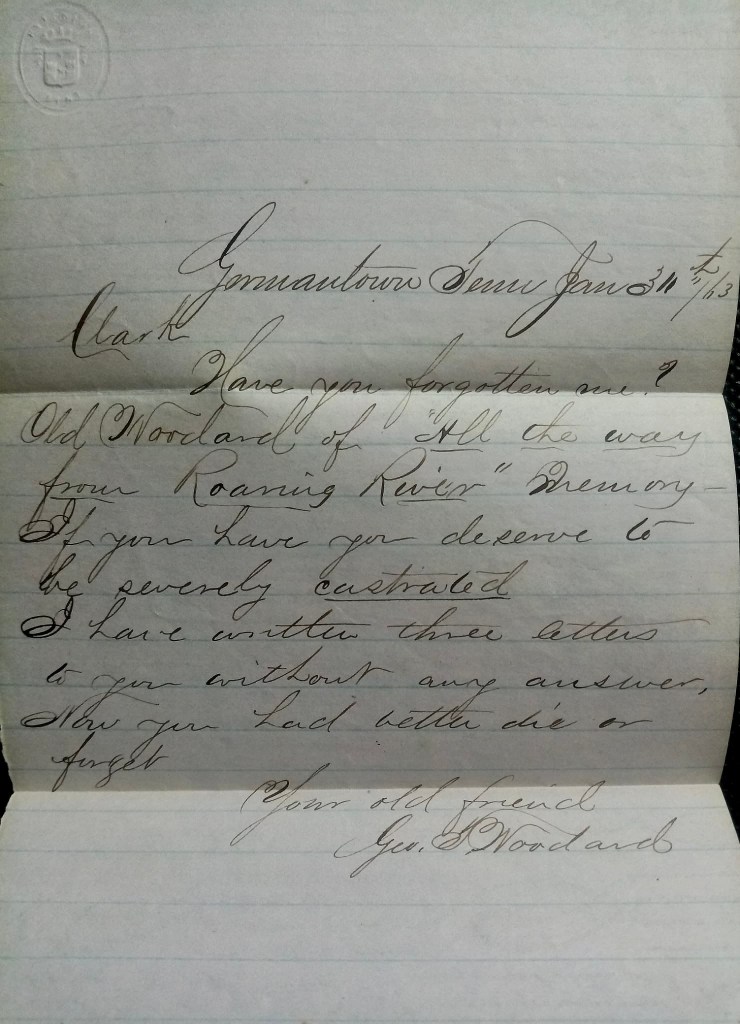 Germantown Tenn Jan 30th
Clark
Have you forgotten me?
Old Woodard of "All the way
from Roaring River" Memory—
If you have you deserve to
be severely castrated
I have written three letters
to you without any answer,
Now you had better die or
forget
Your old friend
Geo. Woodard